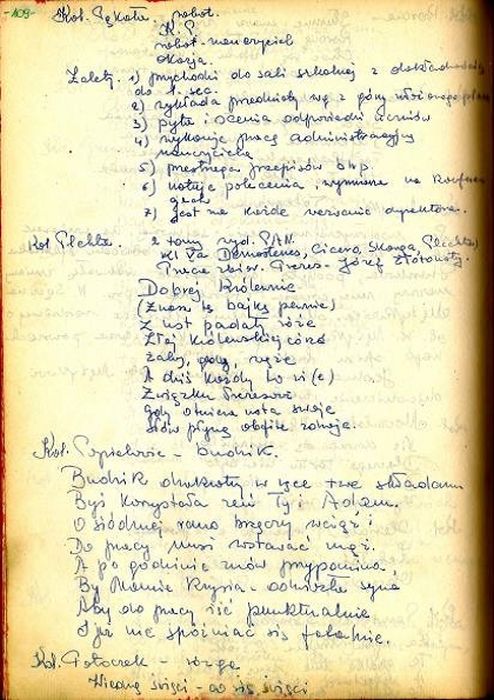 -109-
Kol. Pękała. robot.
K. P.
robot-nauczyciel
Okazja.
Zalety. 1) przychodzi do sali szkolnej z dokładnością
do 1. sec.
2) wykłada przedmioty wg z góry ułożonego planu
3) pyta i ocenia odpowiedzi uczniów
4) wykonuje pracę administracyjną
nauczyciela
5) przestrzega przepisów bhp.
6) notuje polecenia, wymiana na Konferen
gjach
7) jest na każde wezwanie dyrektora.
Kol. Plichta. 2 tomy wyd. PAN.
Kl Va Demostenes, Cicero, Skarga, Plichta)
Praca zbior. Józef Złotousty.
Dobrej Królewnie
(Znasz tę bajkę pewnie)
Z ust padały róże
Złej królewskiej córce
żaby, gady, węże
A dziś każdy to wi(e)
Związku Prezesowi
Gdy otwiera usta swoje
Słów płyną obfite zdroje.
Kol. Popielowie - budzik.
Budzik drukowy w ręce twe składam
Byś korzystała zeń Ty i Adam.
O siódmej rano brzęczy wciąż:
Do pracy musi wstawać mąż.
A po godzinie znów przypomina,
By Mamie Krysia - odwiozła syna
Aby do pracy iść punktualnie
I już nie spóźniać się fatalnie.
Kol. Potoczek - rózga
Wiedzą święci - co się święci